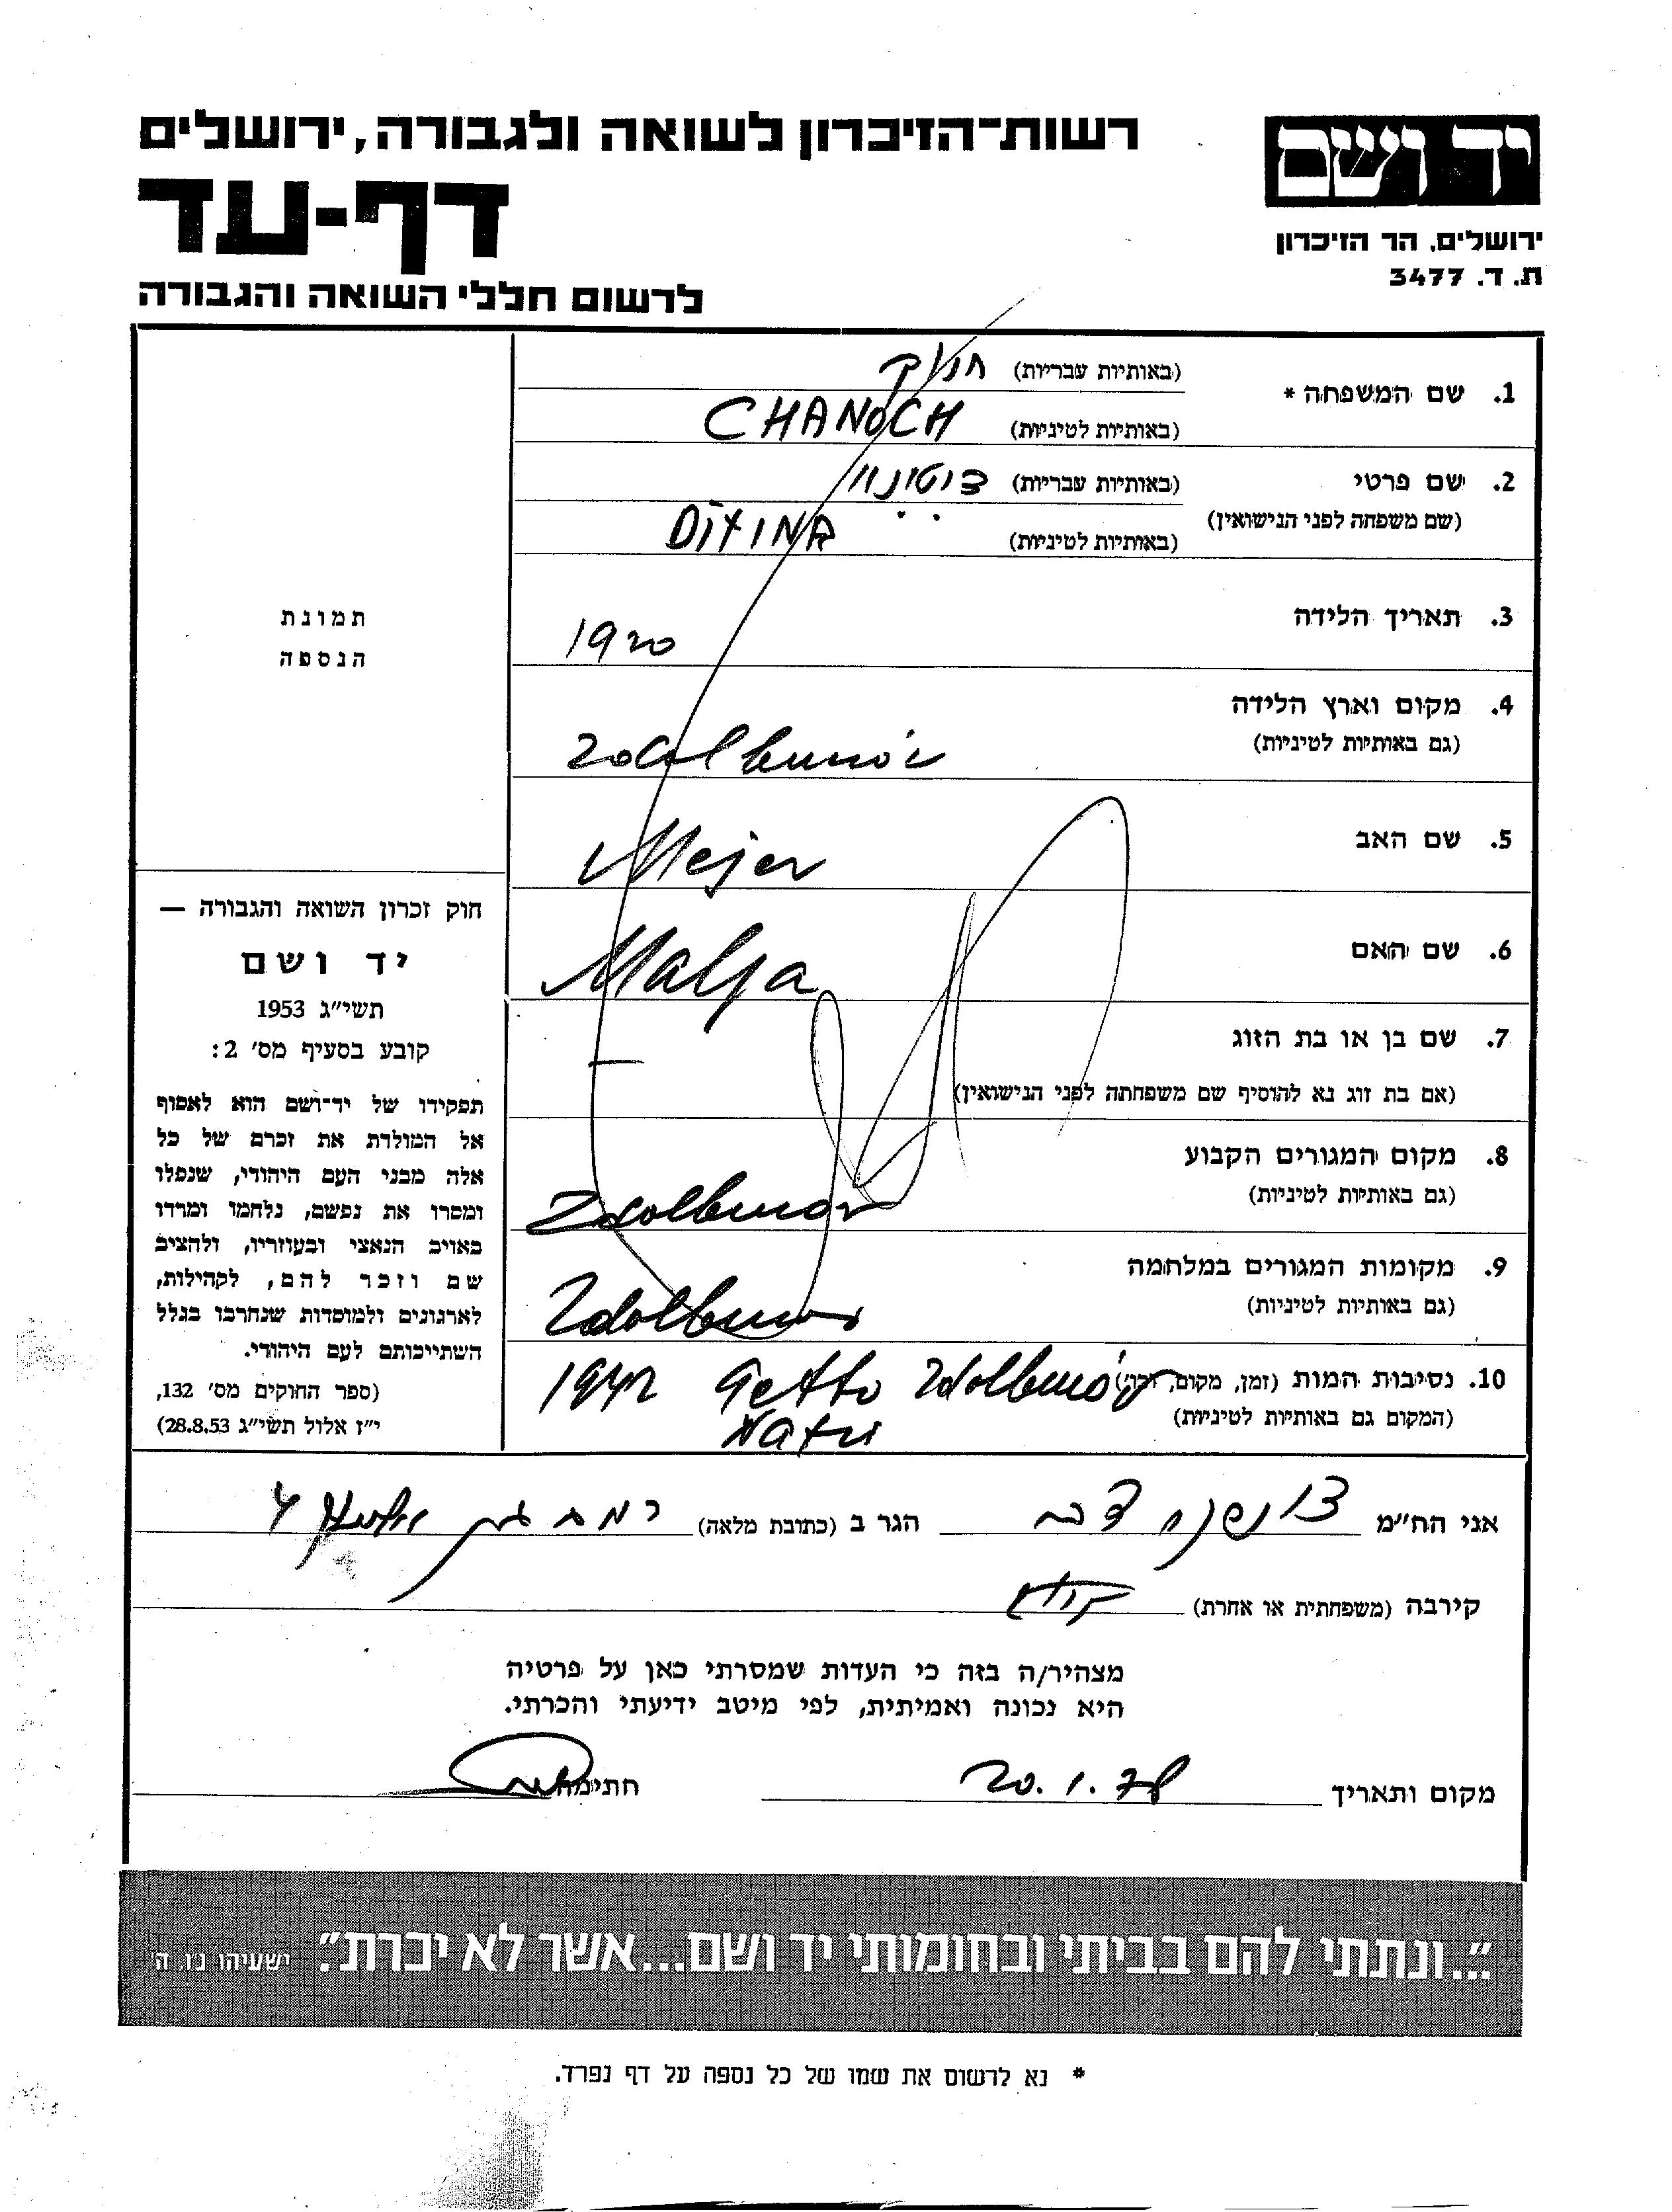 רשות־הזיכרון לשואה ולגבורה, ירושלים
יד ושם
דף-עד
ירושלים, הר הזיכרון
ת. ד. 3477
לרשום חללי השואה והגבורה
1. שם המשפחה *
(באותיות עבריות) חנוך
(באותיות לטיניות) CHANOCH
2. שם פרטי
(שם משפחה לפני הנישואין)
(באותיות עבריות)
(באותיות לטיניות)
3. תאריך הלידה 1920
4. מקום וארץ הלידה
(גם באותיות לטיניות) Zdolbunów
5. שם האב Mejer
6. שם האם
7. שם בן או בת הזוג —
(אם בת זוג נא להוסיף שם משפחתה לפני הנישואין)
8. מקום המגורים הקבוע
(גם באותיות לטיניות) Zdolbunow
9. מקומות המגורים במלחמה
(גם באותיות לטיניות) Zdolbunow
10. נסיבות המות (זמן, מקום, וכו') 1942 Getto Zdolbunów
(המקום גם באותיות לטיניות)
תמונת
הנספה
חוק זכרון השואה והגבורה —
יד ושם
תשי״ג 1953
קובע בסעיף מס׳ 2:
תפקידו של יד־ושם הוא לאסוף
אל המולדת את זכרם של כל
אלה מבני העם היהודי, שנפלו
ומסרו את נפשם, נלחמו ומרדו
באויב הנאצי ובעוזריו, ולהציב
שם וזכר להם, לקהילות,
לארגונים ולמוסדות שנחרבו בגלל
השתייכותם לעם היהודי.
(ספר החוקים מס׳ 132,
י״ז אלול תשי״ג 28.8.53)
אני הח״מ הגר ב (כתובת מלאה) רמת גן 4
קירבה (משפחתית או אחרת)
מצהיר/ה בזה כי העדות שמסרתי כאן על פרטיה
היא נכונה ואמיתית, לפי מיטב ידיעתי והכרתי.
מקום ותאריך 20.1.78 חתימה
"...ונתתי להם בביתי ובחומותי יד ושם...אשר לא יכרת". ישעיהו נ״ו, ה׳
* נא לרשום את שמו של כל נספה על דף נפרד.